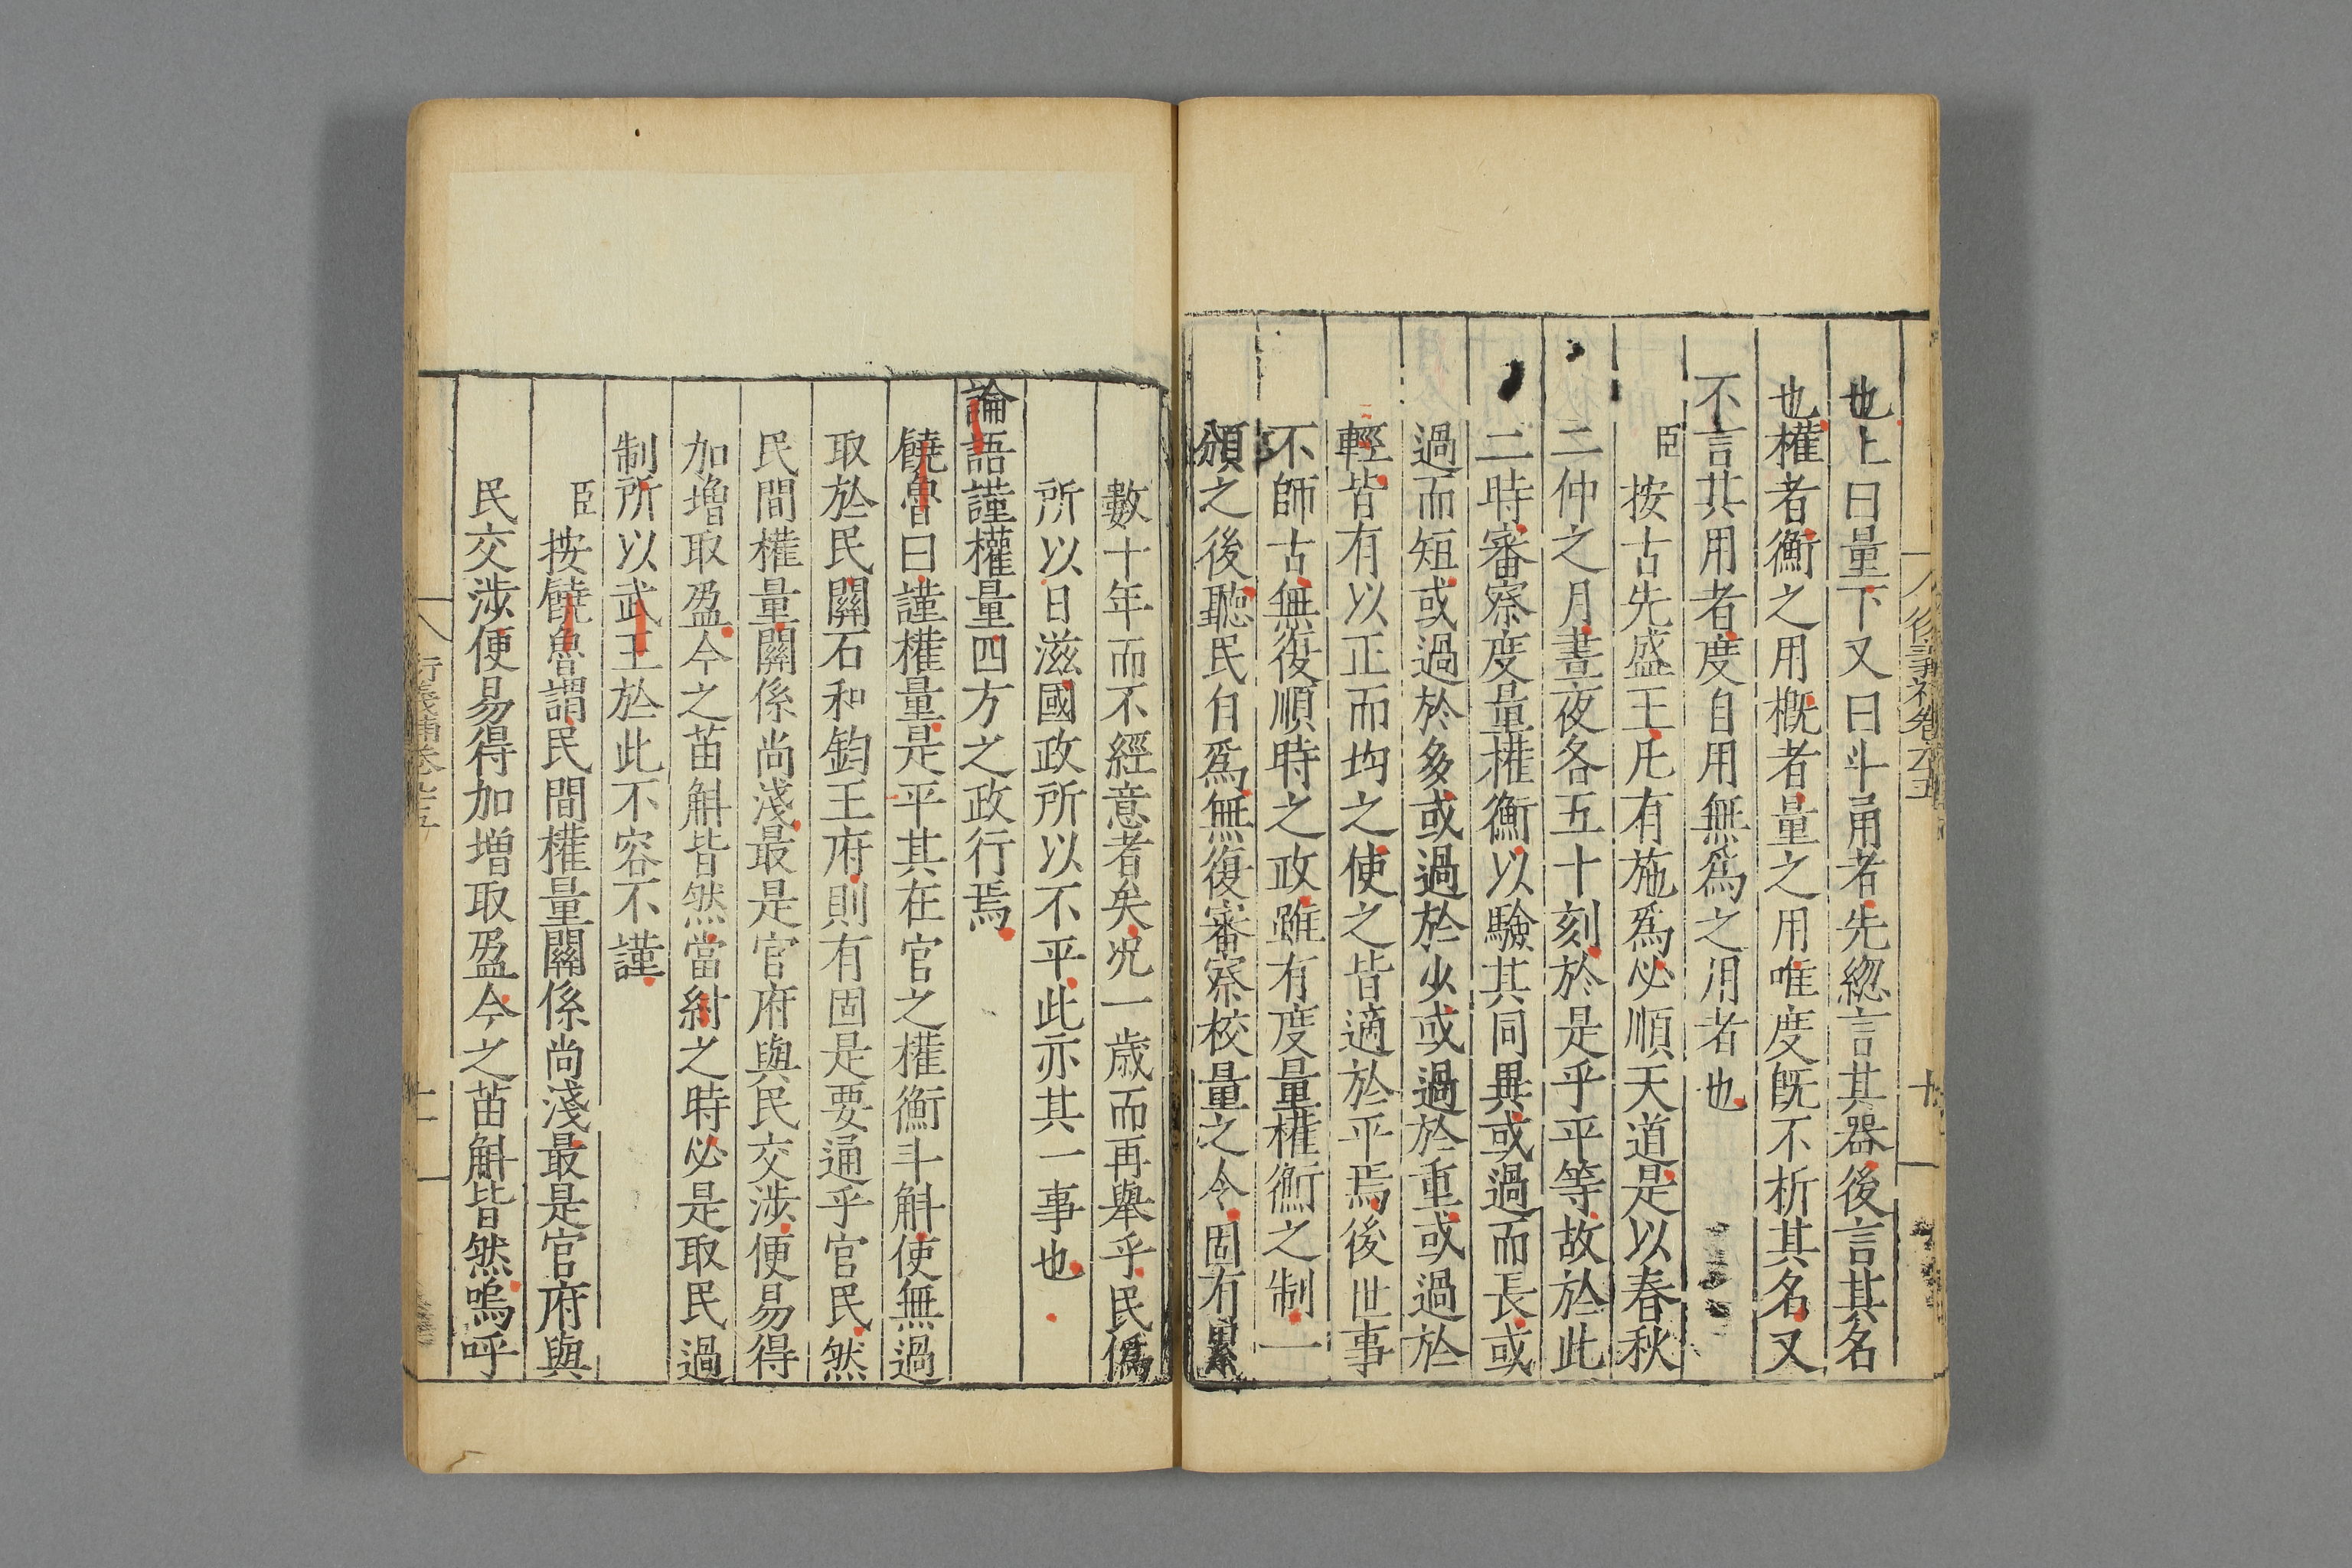 也上曰量下又曰斗甬者先緫言其器後言其名
也權者衡之用槪者量之用唯度旣不析其名又
不言其用者度自用無爲之用者也
臣按古先盛王凡有施爲必順天道是以春秋
二仲之月晝夜各五十刻於是乎平等故於此
二時審察度量權衡以驗其同異或過而長或
過而短或過於多或過於少或過於重或過於
輕皆有以正而均之使之皆適於平焉後世事
不師古無復順時之政雖有度量權衡之制一
頒之後聽民自爲無復審察校量之令固有累
數十年而不經意者矣況一歲而再舉乎民僞
所以日滋國政所以不平此亦其一事也
論語謹權量四方之政行焉
饒魯曰謹權量是平其在官之權衡斗斛使無過
取於民關石和鈞王府則有固是要通乎官民然
民間權量關係尚淺最是官府與民交涉便易得
加增取盈今之苗斛皆然當紂之時必是取民過
制所以武王於此不容不謹
臣按饒魯謂民間權量關係尚淺最是官府與
民交涉便易得加增取盈今之苗斛皆然嗚呼